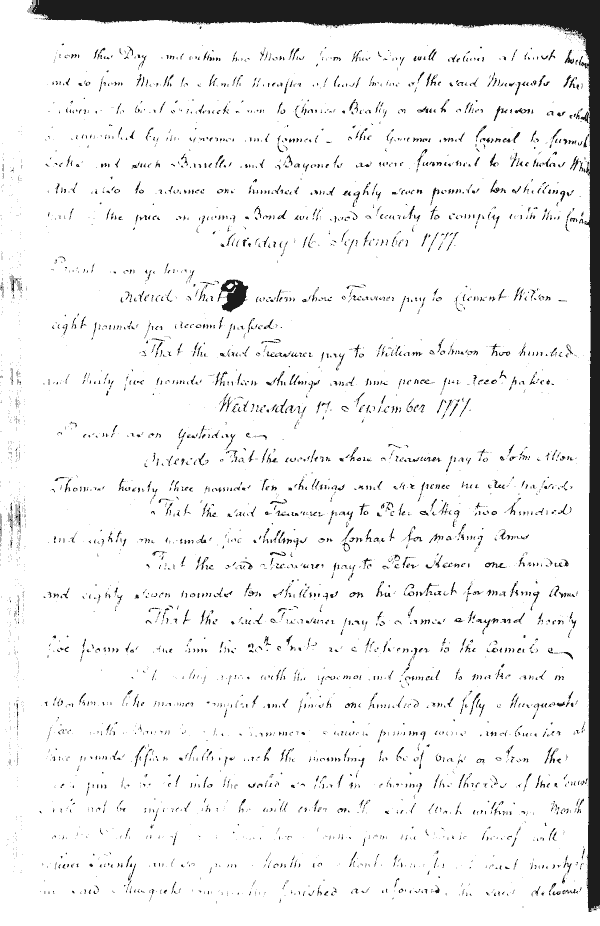 from this Day and within two Months from this Day will deliver at least twelve
and so from Month to Month thereafter at least twelve of the said Musquets the
to be at Frederick Town to Charles Beatty or such other person as shall
be appointed by the Governor and Council - The Governor and Council to furnish
Locks and such Barrells and Bayonets as were furnished to Nicholas White
and also to advance one hundred and eighty seven pounds ten shillings
part of the price on giving Bond with good Security to comply with this Contract
Tuesday 16. September 1777.
Present as on yesterday
Ordered That western shore Treasurer pay to Clement Wilson -
eight pounds per account passed.
That the said Treasurer pay to William Johnson two hundred
and thirty five pounds thirteen shillings and nine pence per Accot. passed.
Wednesday 17. September 1777.
Present as on Yesterday
Ordered That the western shore Treasurer pay to John Allen
Thomas twenty three pounds ten shillings and six pence passed
That the said Treasurer pay to Peter Littig two hundred
and eighty one pounds five shillings on Contract for making Arms
That the said Treasurer pay to Peter Keener one hundred
and eighty seven pounds ten shillings on his Contract for making Arms
That the said Treasurer pay to James Maynard twenty
five pounds due him the 20th. Inst. as Messenger to the Council
agree with the Governor and Council to make and in
a Workman like manner compleat and finish one hundred and fifty Musquets
with Bayonets Rammers priming wires and brushes at
pounds fifteen shillings each the mounting to be of brass or Iron the
pin to be let into the solid so that in the threads of the
not be injured that he will enter on the said Work within one Month
from the Date hereof will
deliver Twenty and so from Month to Month thereafter at least twenty
said Musquets compleatly finished as aforesaid the said delivered